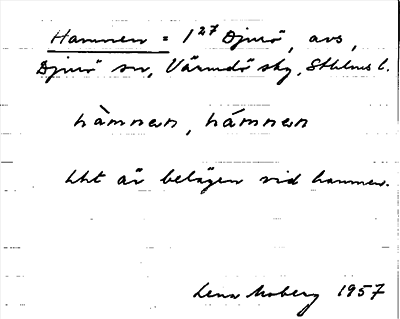 Hamnen = 1²⁷ Djurö, avs,
Djurö sn, Värmdö skg, Sthlms l.
hàmnen, hámnen
Lht är belägen vid hamnen.
Lena Moberg 1957